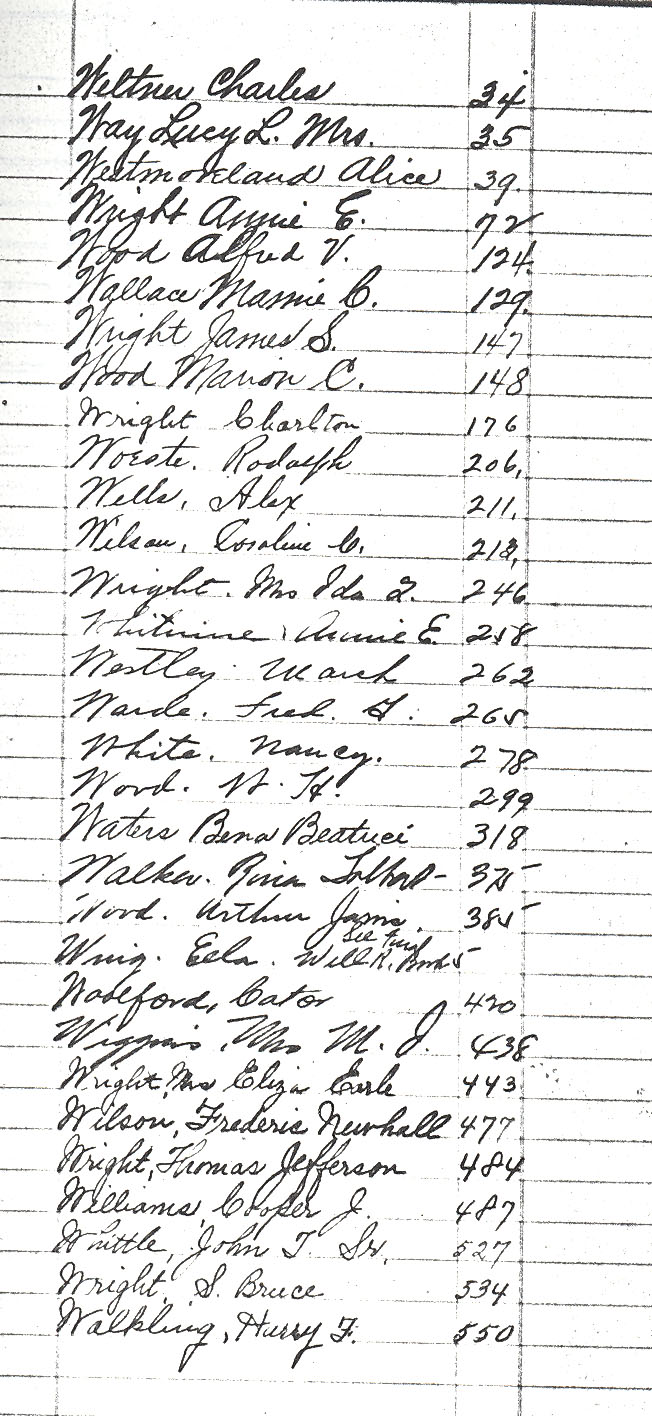 Weltner Charles 34
Way Lucy L. Mrs. 35
Westmoreland Alice 39.
Wright Annie E. 72
Wood Alfred V. 124
Wallace Mamie C. 129
Wright James S. 147
Wood Marion C. 148
Wright Charlton 176
Woeste. Rodolph 206.
Wells, Alex 211.
Wilson, Coraline C.
Wright. Mrs Ida 246
Annie E. 258
Westley March 262
Warde. Fred. 265
White. Nancy. 278
Wood. W. H. 299
Waters Bena Beatrici 318
Walker. Talbert - 375
Wood. Arthur 385
See
Wing. Ella. Will R. Book 5
Woolford, Cator 420
Wiggins, Mrs M. J. 438
Wright, Mrs Eliza Earle 443
Wilson, Frederic Newhall 477
Wright, Thomas Jefferson 484
Williams, Cooper J. 487
Whittle, John T. Sr. 527
Wright, S. Bruce 534
Walkling, Harry F. 550